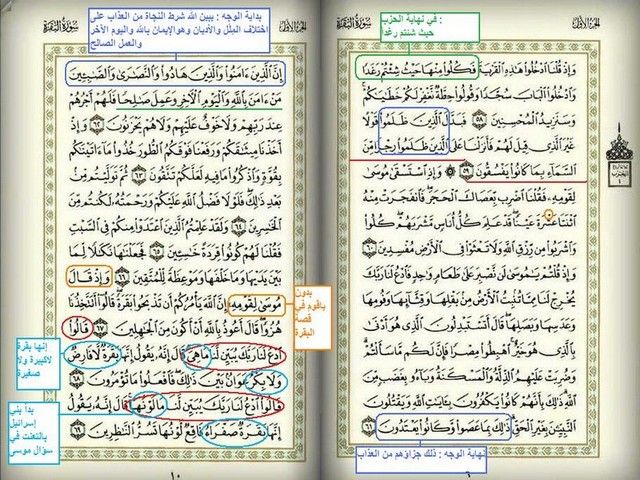 الجزء الأول
سورة البقرة
: في نهاية الحزب
حيث شئتم رغداً
وَإِذْ قُلْنَا ادْخُلُوا هَٰذِهِ الْقَرْيَةَ فَكُلُوا مِنْهَا حَيْثُ شِئْتُمْ رَغَدًا
وَادْخُلُوا الْبَابَ سُجَّدًا وَقُولُوا حِطَّةٌ نَغْفِرْ لَكُمْ خَطَايَاكُمْ
وَسَنَزِيدُ الْمُحْسِنِينَ ٥٨ فَبَدَّلَ الَّذِينَ ظَلَمُوا قَوْلًا
غَيْرَ الَّذِي قِيلَ لَهُمْ فَأَنْزَلْنَا عَلَى الَّذِينَ ظَلَمُوا رِجْزًا مِنَ
السَّمَاءِ بِمَا كَانُوا يَفْسُقُونَ ٥٩ وَإِذِ اسْتَسْقَىٰ مُوسَىٰ
لِقَوْمِهِ فَقُلْنَا اضْرِبْ بِعَصَاكَ الْحَجَرَ فَانْفَجَرَتْ مِنْهُ
اثْنَتَا عَشْرَةَ عَيْنًا قَدْ عَلِمَ كُلُّ أُنَاسٍ مَشْرَبَهُمْ كُلُوا
وَاشْرَبُوا مِنْ رِزْقِ اللَّهِ وَلَا تَعْثَوْا فِي الْأَرْضِ مُفْسِدِينَ ٦٠
وَإِذْ قُلْتُمْ يَا مُوسَىٰ لَنْ نَصْبِرَ عَلَىٰ طَعَامٍ وَاحِدٍ فَادْعُ لَنَا رَبَّكَ
يُخْرِجْ لَنَا مِمَّا تُنْبِتُ الْأَرْضُ مِنْ بَقْلِهَا وَقِثَّائِهَا وَفُومِهَا
وَعَدَسِهَا وَبَصَلِهَا قَالَ أَتَسْتَبْدِلُونَ الَّذِي هُوَ أَدْنَىٰ
بِالَّذِي هُوَ خَيْرٌ اهْبِطُوا مِصْرًا فَإِنَّ لَكُمْ مَا سَأَلْتُمْ
وَضُرِبَتْ عَلَيْهِمُ الذِّلَّةُ وَالْمَسْكَنَةُ وَبَاءُوا بِغَضَبٍ مِنَ
اللَّهِ ذَٰلِكَ بِأَنَّهُمْ كَانُوا يَكْفُرُونَ بِآيَاتِ اللَّهِ وَيَقْتُلُونَ
النَّبِيِّينَ بِغَيْرِ الْحَقِّ ذَٰلِكَ بِمَا عَصَوْا وَكَانُوا يَعْتَدُونَ ٦١
نهاية الوجه : ذلك جزاؤهم من العذاب
الجزء الأول
سورة البقرة
بداية الوجه : يبين الله شرط النجاة من العذاب على
اختلاف الملل والأديان وهوالإيمان بالله واليوم الآخر
والعمل الصالح
إِنَّ الَّذِينَ آمَنُوا وَالَّذِينَ هَادُوا وَالنَّصَارَىٰ وَالصَّابِئِينَ
مَنْ آمَنَ بِاللَّهِ وَالْيَوْمِ الْآخِرِ وَعَمِلَ صَالِحًا فَلَهُمْ أَجْرُهُمْ
عِنْدَ رَبِّهِمْ وَلَا خَوْفٌ عَلَيْهِمْ وَلَا هُمْ يَحْزَنُونَ ٦٢ وَإِذْ
أَخَذْنَا مِيثَاقَكُمْ وَرَفَعْنَا فَوْقَكُمُ الطُّورَ خُذُوا مَا آتَيْنَاكُمْ
بِقُوَّةٍ وَاذْكُرُوا مَا فِيهِ لَعَلَّكُمْ تَتَّقُونَ ٦٣ ثُمَّ تَوَلَّيْتُمْ مِنْ
بَعْدِ ذَٰلِكَ فَلَوْلَا فَضْلُ اللَّهِ عَلَيْكُمْ وَرَحْمَتُهُ لَكُنْتُمْ مِنَ
الْخَاسِرِينَ ٦٤ وَلَقَدْ عَلِمْتُمُ الَّذِينَ اعْتَدَوْا مِنْكُمْ فِي السَّبْتِ
فَقُلْنَا لَهُمْ كُونُوا قِرَدَةً خَاسِئِينَ ٦٥ فَجَعَلْنَاهَا نَكَالًا لِمَا
بَيْنَ يَدَيْهَا وَمَا خَلْفَهَا وَمَوْعِظَةً لِلْمُتَّقِينَ ٦٦ وَإِذْ قَالَ
مُوسَىٰ لِقَوْمِهِ إِنَّ اللَّهَ يَأْمُرُكُمْ أَنْ تَذْبَحُوا بَقَرَةً قَالُوا أَتَتَّخِذُنَا
هُزُوًا قَالَ أَعُوذُ بِاللَّهِ أَنْ أَكُونَ مِنَ الْجَاهِلِينَ ٦٧ قَالُوا
ادْعُ لَنَا رَبَّكَ يُبَيِّنْ لَنَا مَا هِيَ قَالَ إِنَّهُ يَقُولُ إِنَّهَا بَقَرَةٌ لَا فَارِضٌ
وَلَا بِكْرٌ عَوَانٌ بَيْنَ ذَٰلِكَ فَافْعَلُوا مَا تُؤْمَرُونَ ٦٨
قَالُوا ادْعُ لَنَا رَبَّكَ يُبَيِّنْ لَنَا مَا لَوْنُهَا قَالَ إِنَّهُ يَقُولُ
إِنَّهَا بَقَرَةٌ صَفْرَاءُ فَاقِعٌ لَوْنُهَا تَسُرُّ النَّاظِرِينَ ٦٩
بدون
ياقوم في
قصة
البقرة
إنها بقرة
لاكبيرة ولا
صغيرة
بدا بني
إسرائيل
بالتعنت في
سؤال موسى
١٠